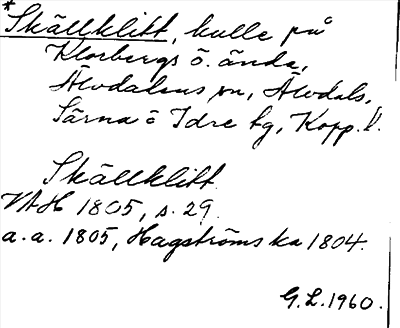 *Skällklitt, kulle på
Klorbergs ö. ända,
Älvdalens sn, Älvdals,
Särna o Idre tg, Kopp. l.
Skällklitt
VAH 1805, s. 29.
a. a. 1805, Hagströms ka 1804.
G. L. 1960.